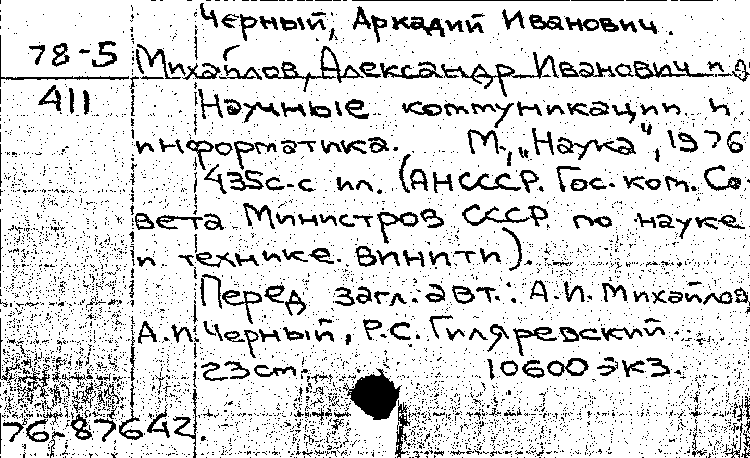 Черный, Аркадий Иванович.
78-5 Михайлов, Александр Иванович и д
411 Научные коммуникации и
информатика. М., „Наука“, 1976
435с. с ил. (АН СССР. Гос. ком. Со-
вета Министров СССР по науке
и технике. ВИНИТИ).
Перед загл. авт.: А.И. Михайлов
А.И. Черный, Р.С. Гиляревский.
23 см. 10600 экз.
76-87642.